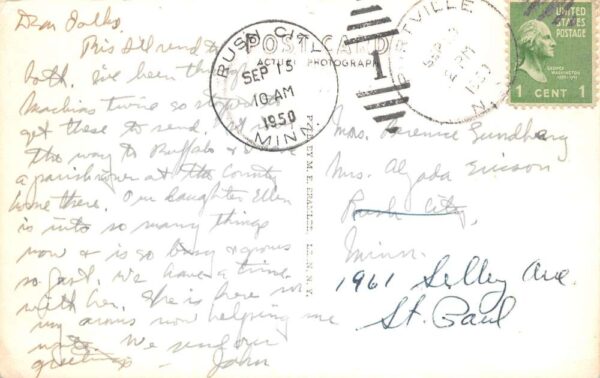 Dear Folks,
This I'll send to
both. I've been through
Machias twice so stopped to
get these to send.
the way to Buffalo &
a parishioner at the County
home there. Our daughter Ellen
is into so many things
now & is so busy & grows
so fast. We have a time
with her. She is here in
my arms now helping me
write. We send our
greetings — John
POST CARD
ACTUAL PHOTOGRAPH
RUSH CITY
SEP 15
10 AM
1950
MINN.
1
UNITED
STATES
POSTAGE
GEORGE
WASHINGTON
1 CENT 1
Mrs. Florence Sundberg
Mrs. Alzada Ericson
Rush City,
Minn.
1961 Selby Ave.
St. Paul